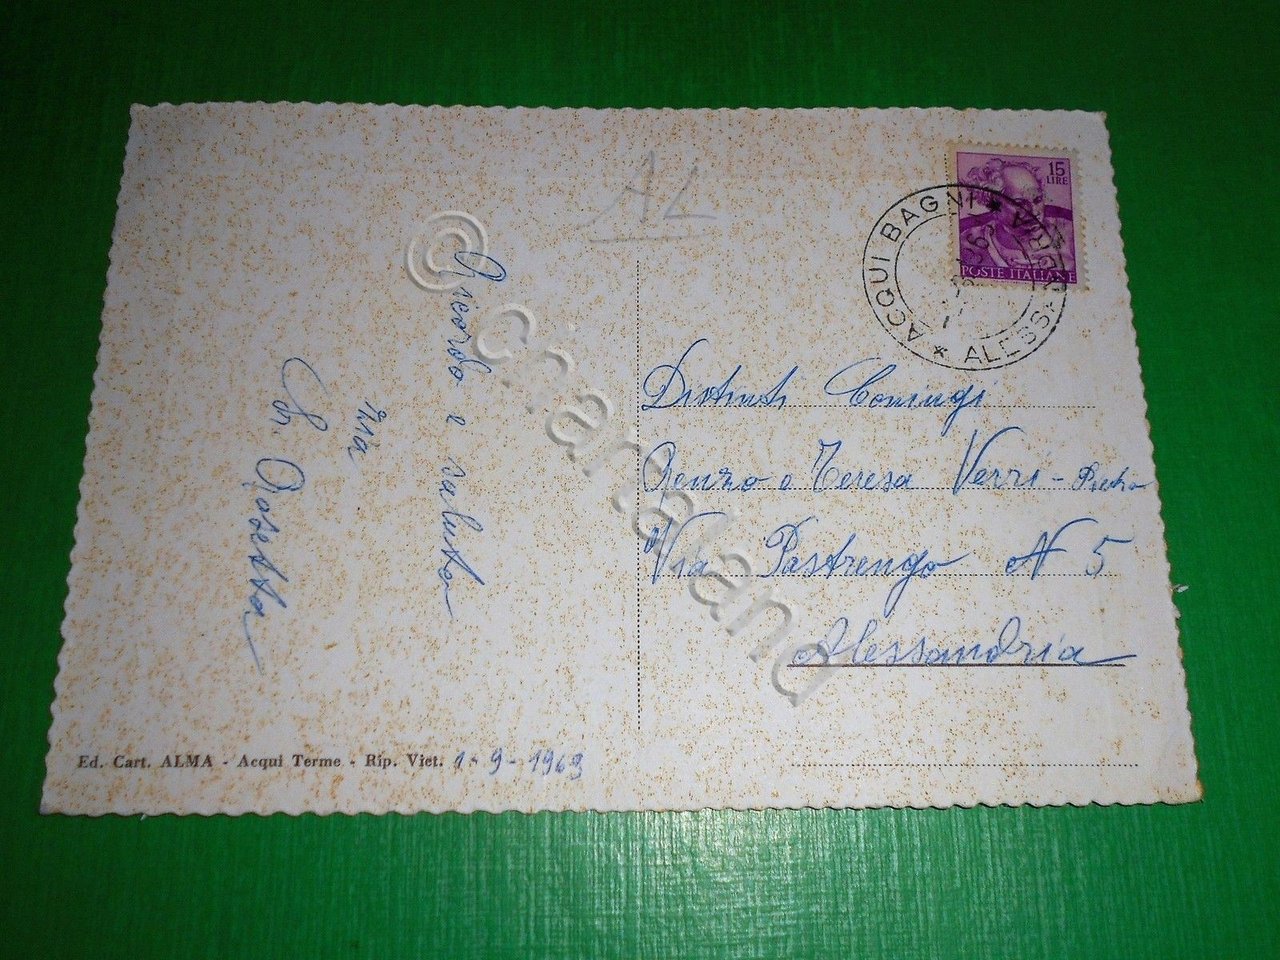 AL
15
LIRE
POSTE ITALIANE
ACQUI BAGNI * ALESSANDRIA *
Ricordo e saluta
zia
Rosetta
Distinti Coniugi
Renzo e Teresa Verri -
Via Pastrengo N 5
Alessandria
Ed. Cart. ALMA - Acqui Terme - Rip. Viet. 1-9-1963
© chartaland